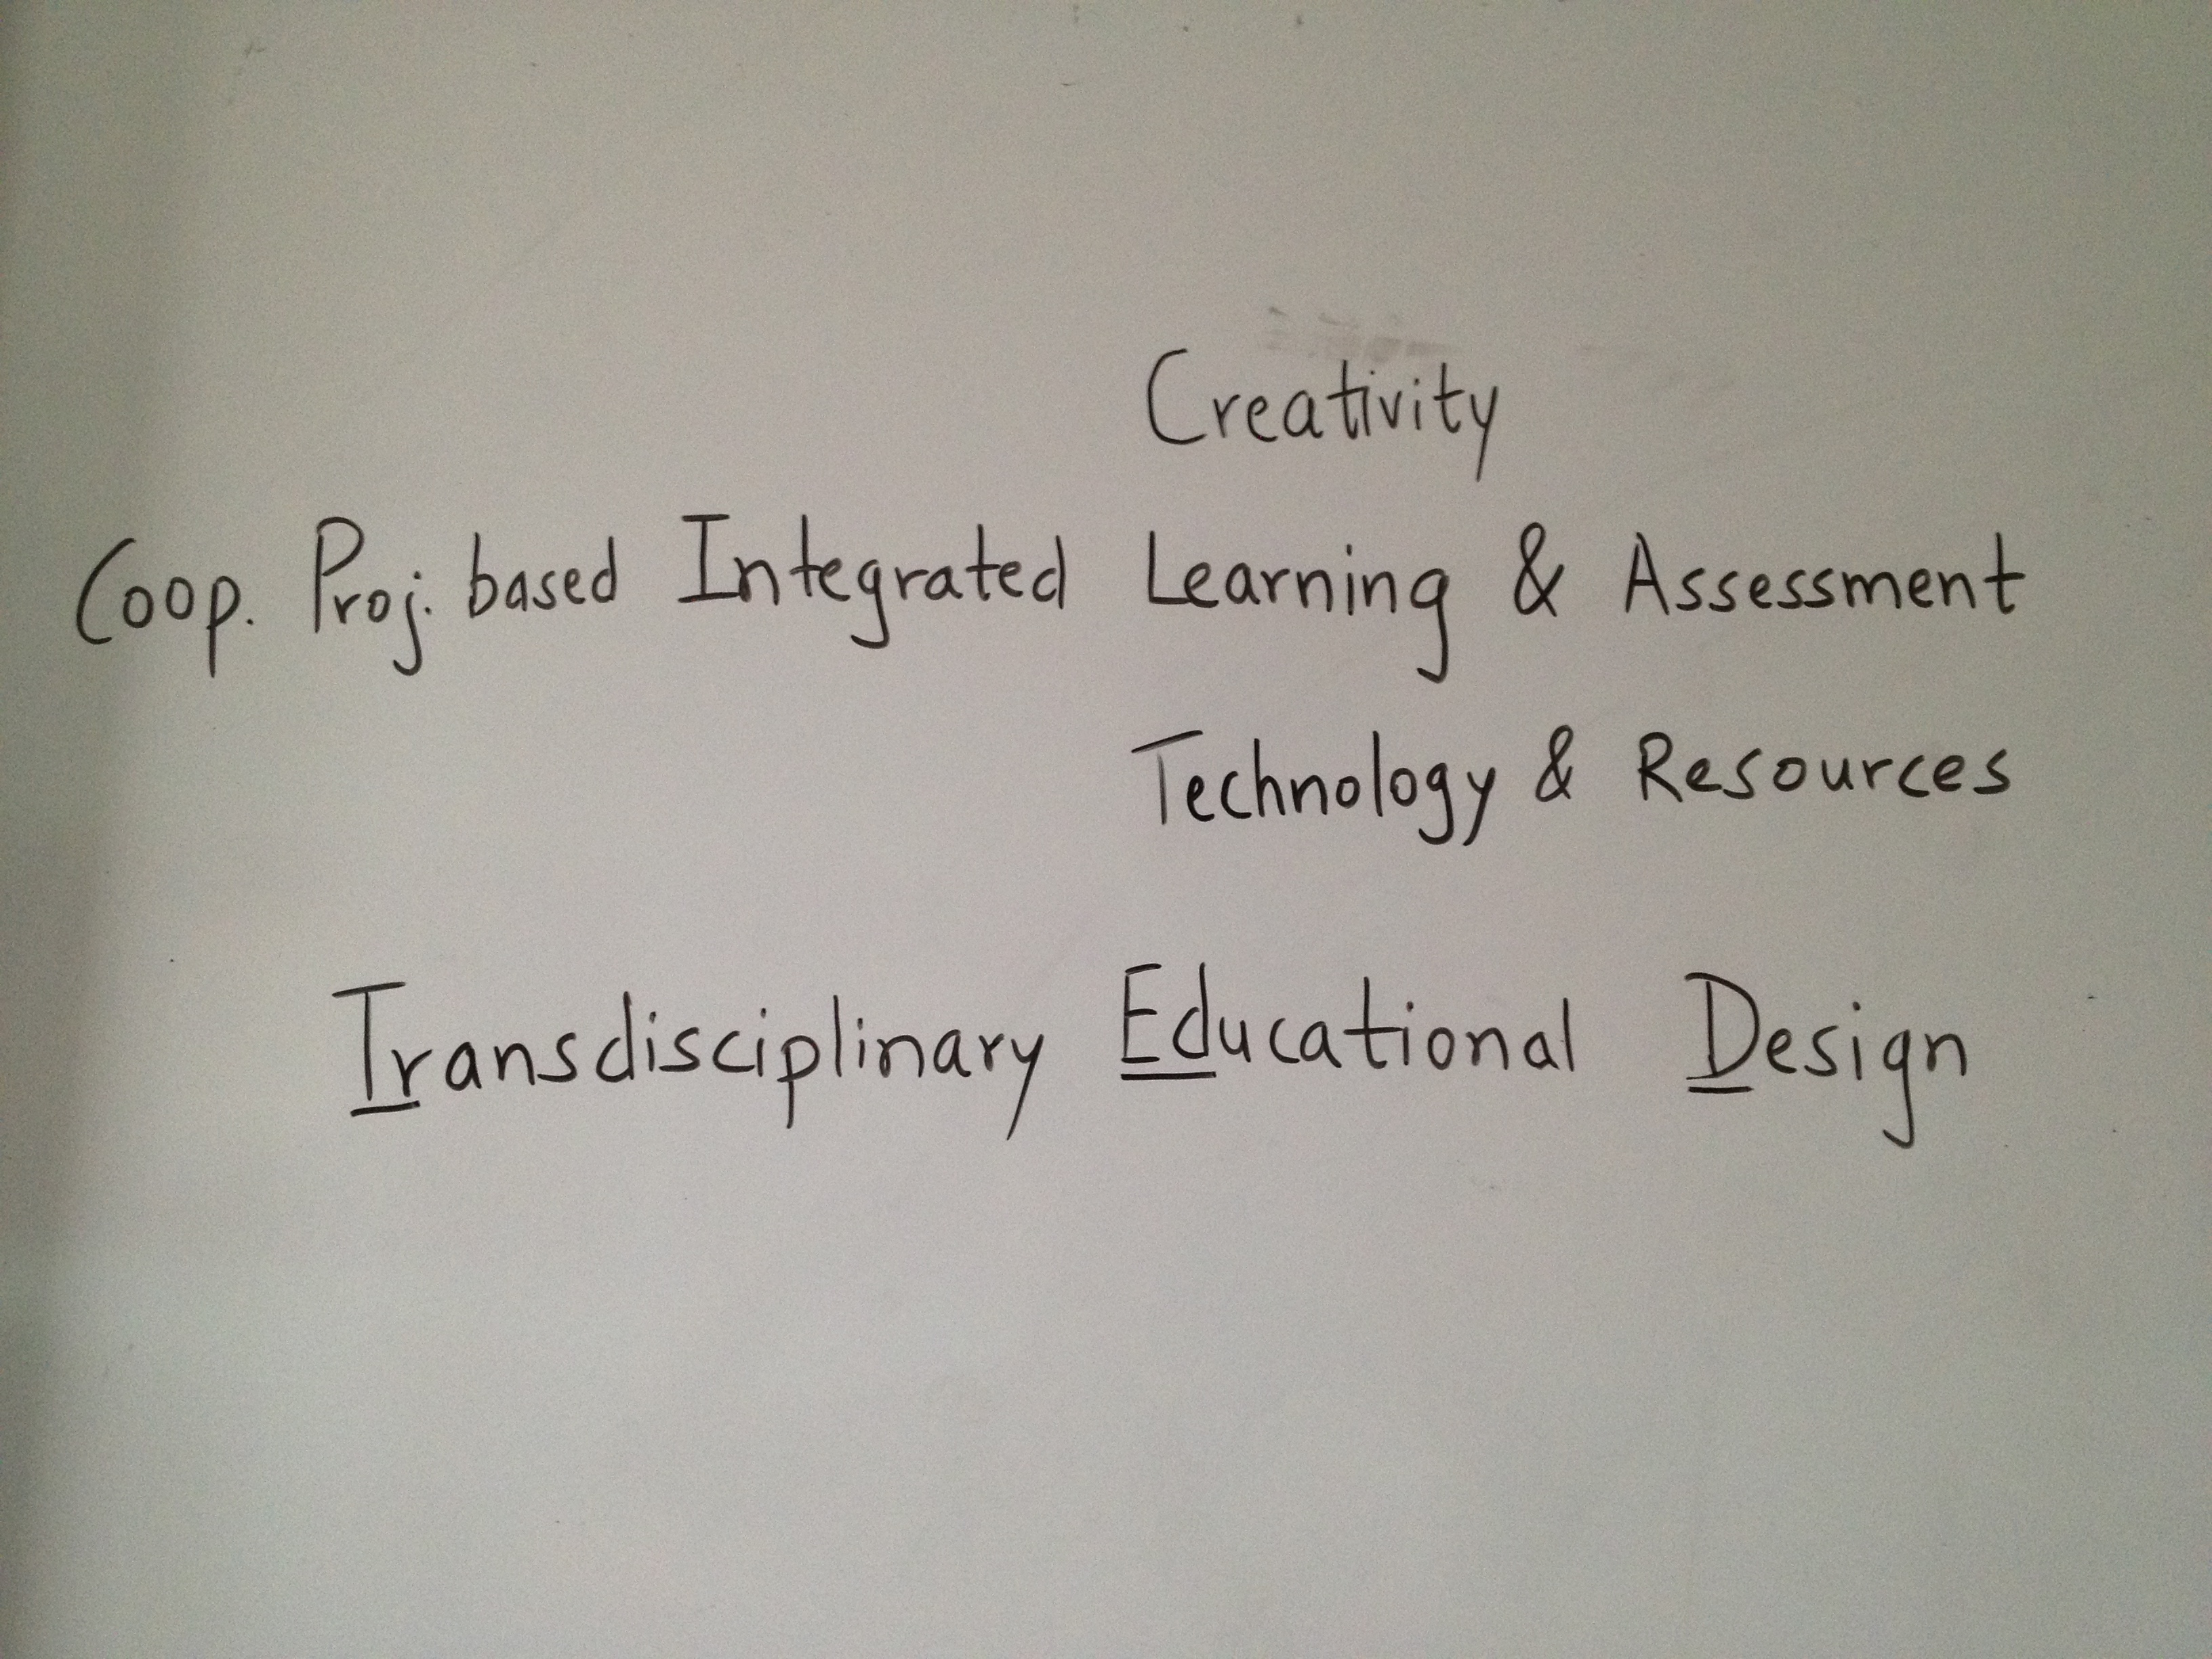 Creativity
Coop. Proj. based Integrated Learning & Assessment
Technology & Resources
Transdisciplinary Educational Design